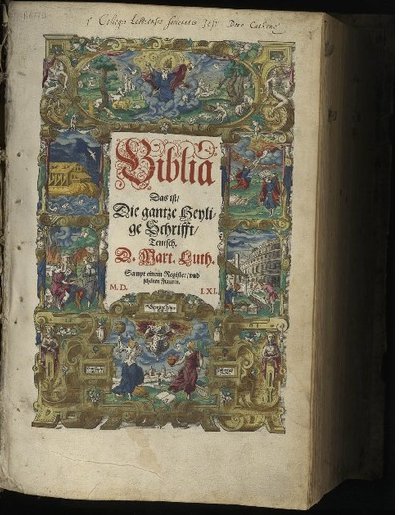 Collegii
Biblia
Das ist/
Die gantze Heyli-
ge Schrifft/
Teutsch.
D. Mart. Luth.
Sampt einem Register/ vnd
schönen Figuren.
M. D. LXI.